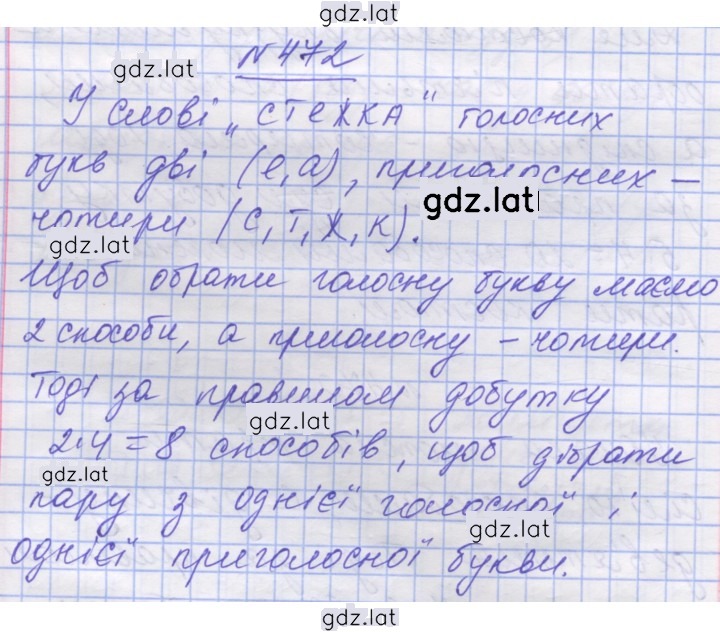 gdz.lat
№472
gdz.lat
У слові „СТЕЖКА" голосних
букв дві (е, а), приголосних –
gdz.lat
чотири (с, т, ж, к).
gdz.lat
Щоб обрати голосну букву маємо
2 способи, а приголосну – чотири.
Тоді за правилом добутку
gdz.lat
2·4=8 способів, щоб дібрати
gdz.lat
пару з однієї голосної і
gdz.lat
однієї приголосної букви.
gdz.lat